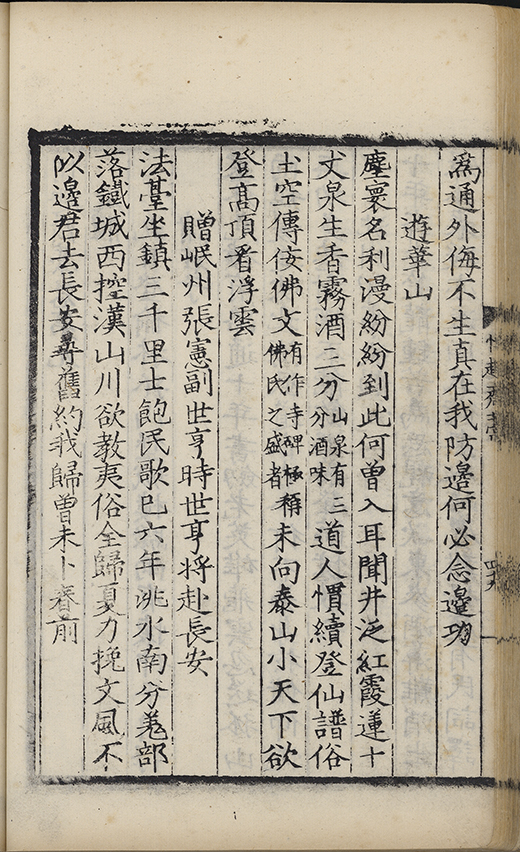 爲通外侮不生真在我防邊何必念邊功
遊華山
塵寰名利漫紛紛到此何曽入耳聞井泛紅霞蓮十
丈泉生香霧酒三分山泉有三分酒味道人慣續登仙譜俗
士空傳侫佛文有作寺碑極稱佛氏之盛者未向泰山小天下欲
登髙頂看浮雲
贈岷州張憲副世亨時世亨將赴長安
法臺坐鎮三千里士飽民歌已六年洮水南分羗部
落鐵城西控漢山川欲教夷俗全歸夏力挽文風不
以邊君去長安尋舊約我歸曽未卜春前